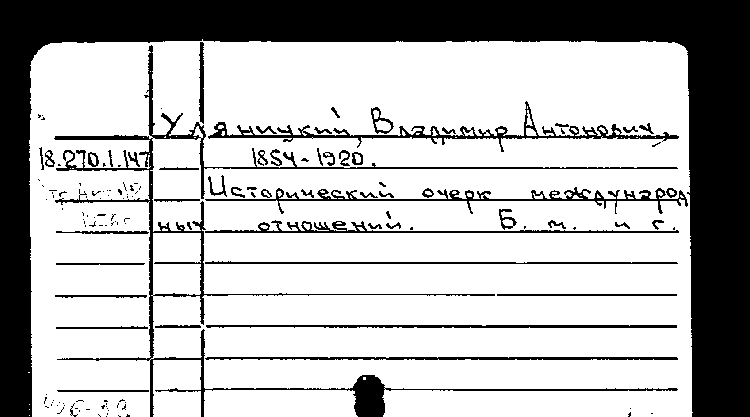 Уляницкий, Владимир Антонович,
18.270.1.147 1854-1920.
Исторический очерк международ-
ных отношений. Б. м. и г.